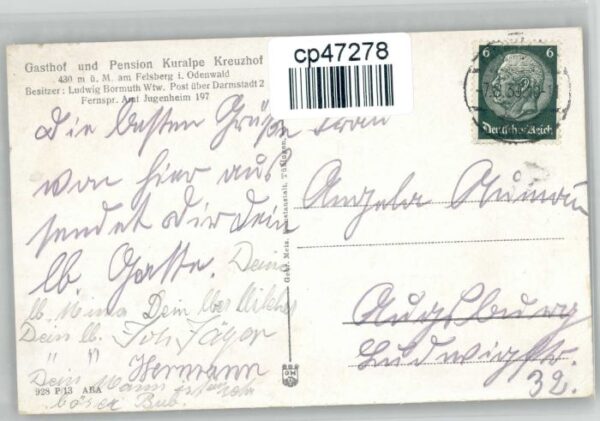 Gasthof und Pension Kuralpe Kreuzhof
430 m ü. M. am Felsberg i. Odenwald
Besitzer: Ludwig Bormuth Wtw. Post über Darmstadt 2
Fernspr. Amt Jugenheim 197
cp47278
6 6
Deutsches Reich
Die besten Grüße
von hier aus
sendet Dir Dein
lb. Gatte. Deine
lb. Mina Dein
Dein lb. Joh Jäger
" " Hermann
Dein Mann
böser Bub.
928 P 13 ABA
Gebr. Metz, Kunstanstalt, Tübingen
Frau
Angela
Augsburg
Ludwigstr.
32.